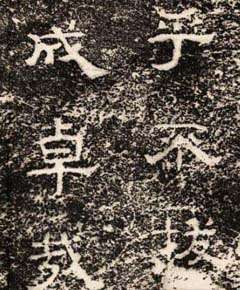 乎不拔
成卓哉